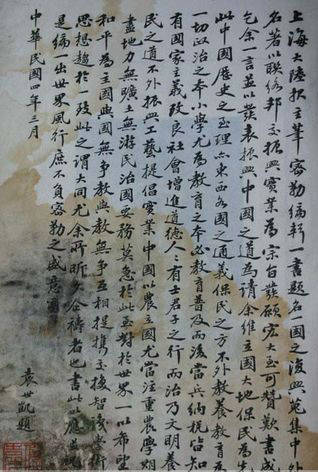 上海大陸報主筆密勒編輯一書題名國之復興蒐集中外
名著以聯絡邦交振興實業為宗旨發願宏大至可贊歎書成
乞余一言並以發表振興中國之道為請余維立國大地保民為先
此中國歷史之至理亦東西各國之通義保民之方不外教養教育為
一切政治之本小學尤為教育之本必教育普及而後當兵納稅皆知
有國家主義改良社會增進道德人人有士君子之行而治乃文明養
民之道不外振興工藝提倡實業中國以農立國尤當注重農學期
盡地力無曠土無游民治國要務莫急於此至對於世界一以希望
和平為主國與國無爭教與教無爭互相提攜交換智識學術
思想趨於一致此之謂大同尤余所昕夕企禱者也書此以應並
是編出世界風行庶不負密勒之盛意焉
中華民國四年三月
袁世凱題